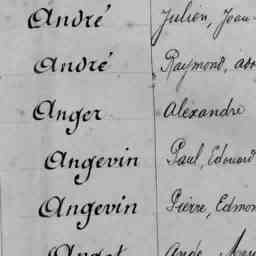 André Julien, Jean-
André Raymond,
Anger Alexandre
Angevin Paul, Edouard
Angevin Pierre, Edmon
Angot